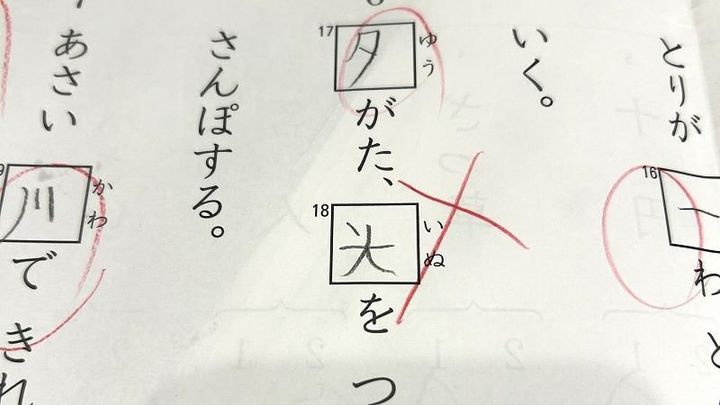 とりが
16
わ
いく。
17
夕
ゆう
がた、
18
犬
いぬ
を
つ
さんぽする。
あさい
川
かわ
で
きれ